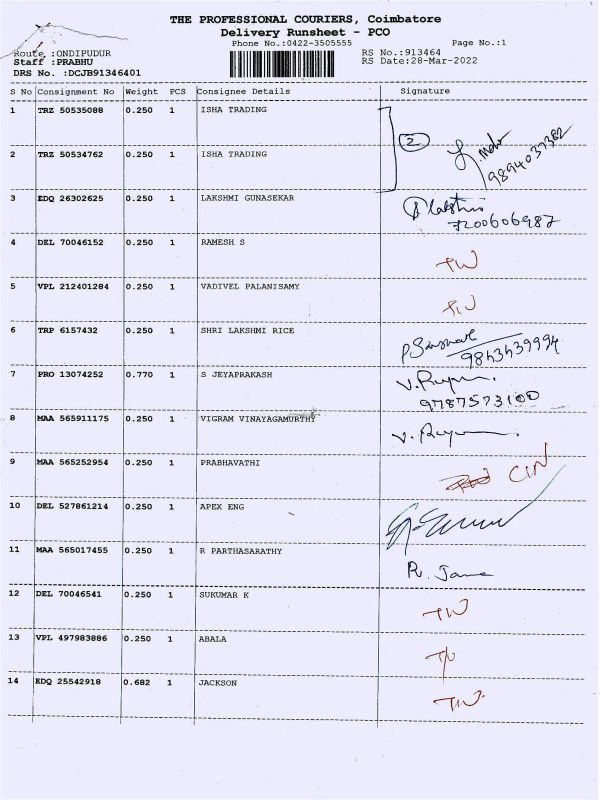 THE PROFESSIONAL COURIERS, Coimbatore
Delivery Runsheet - PCO
Phone No.:0422-3505555 Page No.:1
Route :ONDIPUDUR RS No.:913464
Staff :PRABHU RS Date:28-Mar-2022
DRS No. :DCJB91346401
S No Consignment No Weight PCS Consignee Details Signature
1 TRZ 50535088 0.250 1 ISHA TRADING
2
9894037382
2 TRZ 50534762 0.250 1 ISHA TRADING
3 EDQ 26302625 0.250 1 LAKSHMI GUNASEKAR
7200606987
4 DEL 70046152 0.250 1 RAMESH S
5 VPL 212401284 0.250 1 VADIVEL PALANISAMY
6 TRP 6157432 0.250 1 SHRI LAKSHMI RICE
7 PRO 13074252 0.770 1 S JEYAPRAKASH
9787573100
8 MAA 565911175 0.250 1 VIGRAM VINAYAGAMURTHY
9 MAA 565252954 0.250 1 PRABHAVATHI
CIN
10 DEL 527861214 0.250 1 APEX ENG
11 MAA 565017455 0.250 1 R PARTHASARATHY
12 DEL 70046541 0.250 1 SUKUMAR K
13 VPL 497983886 0.250 1 ABALA
14 EDQ 25542918 0.682 1 JACKSON